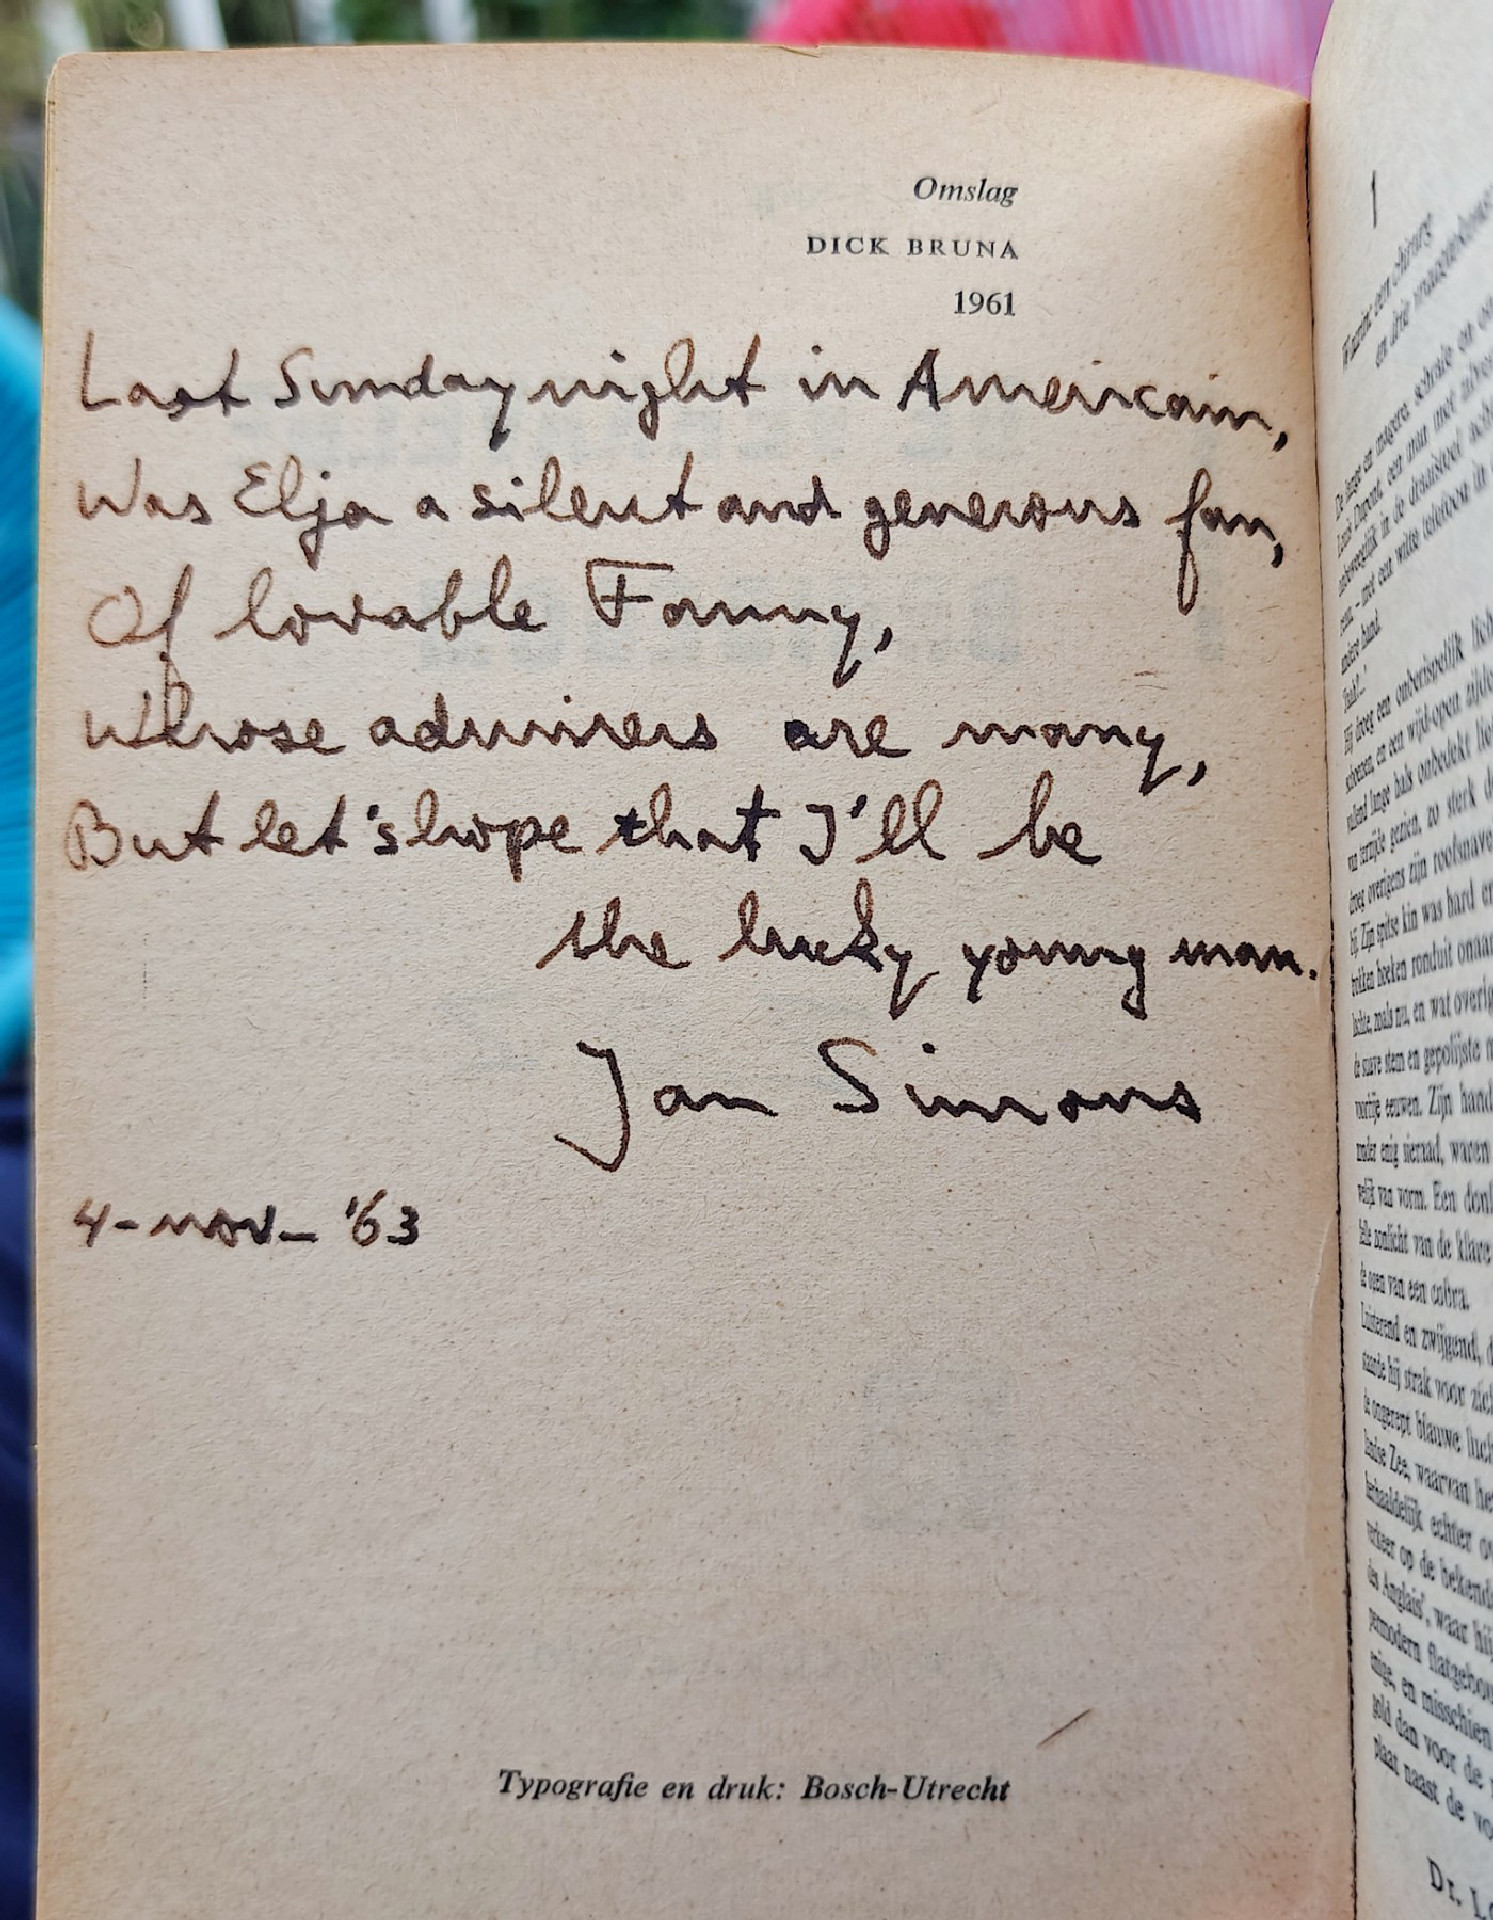 Omslag
DICK BRUNA
1961
Last Sunday night in Americain,
Was Elja a silent and generous fan,
Of lovable Fanny,
Whose admirers are many,
But let's hope that I'll be
the lucky young man.
Jan Simons
4-nov- '63
Typografie en druk: Bosch-Utrecht
1
Waarin een chirurg
en drie
De lange en magere, schrale en
Louis Dupont, een man met
onbeweeglijk in de draaistoel achter
met een witte telefoon in
andere hand.
Hij droeg een onberispelijk
schoenen, en een wijd-open
vallend lange hals onbedekt
van terzijde gezien, zo sterk
droeg overigens zijn
bij. Zijn spitse kin was hard
trokken hoeken ronduit
lachte, zoals nu, en wat
de suave stem en gepolijste
voorbije eeuwen. Zijn
zonder enig sieraad, waren
welijk van vorm. Een
felle zonlicht van de klare
de ogen van een cobra.
Luisterend en zwijgend,
staarde hij strak voor
de ongerept blauwe
landse Zee, waarvan
herhaaldelijk echter
verkeer op de
des Anglais', waar
permodern
enige, en misschien
gold dan voor de
plaan naast de
Dr.